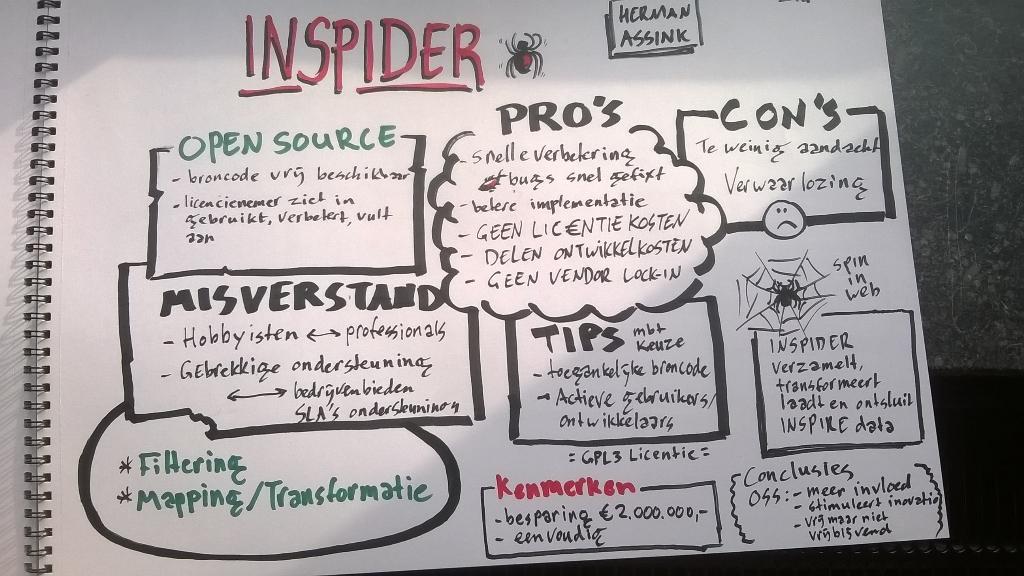 INSPIDER
HERMAN
ASSINK
OPEN SOURCE
- broncode vrij beschikbaar
- licencienemer ziet in
gebruikt, verbetert, vult
aan
PRO'S
- snelle verbetering
bugs snel gefixt
- betere implementatie
- GEEN LICENTIE KOSTEN
- DELEN ONTWIKKELKOSTEN
- GEEN VENDOR LOCK-IN
CON'S
Te weinig aandacht
Verwaarlozing
MISVERSTAND
- Hobbyisten <-> professionals
- Gebrekkige ondersteuning
<-> bedrijven bieden
SLA's ondersteuning
TIPS mbt
keuze
- toegankelijke broncode
- Actieve gebruikers/
ontwikkelaars
= GPL3 Licentie =
spin
in
web
INSPIDER
verzamelt,
transformeert
laadt en ontsluit
INSPIRE data
* Filtering
* Mapping/Transformatie
Kenmerken
- besparing € 2.000.000,-
- eenvoudig
Conclusies
OSS: - meer invloed
- stimuleert inovatie
- vrij maar niet
vrijblijvend